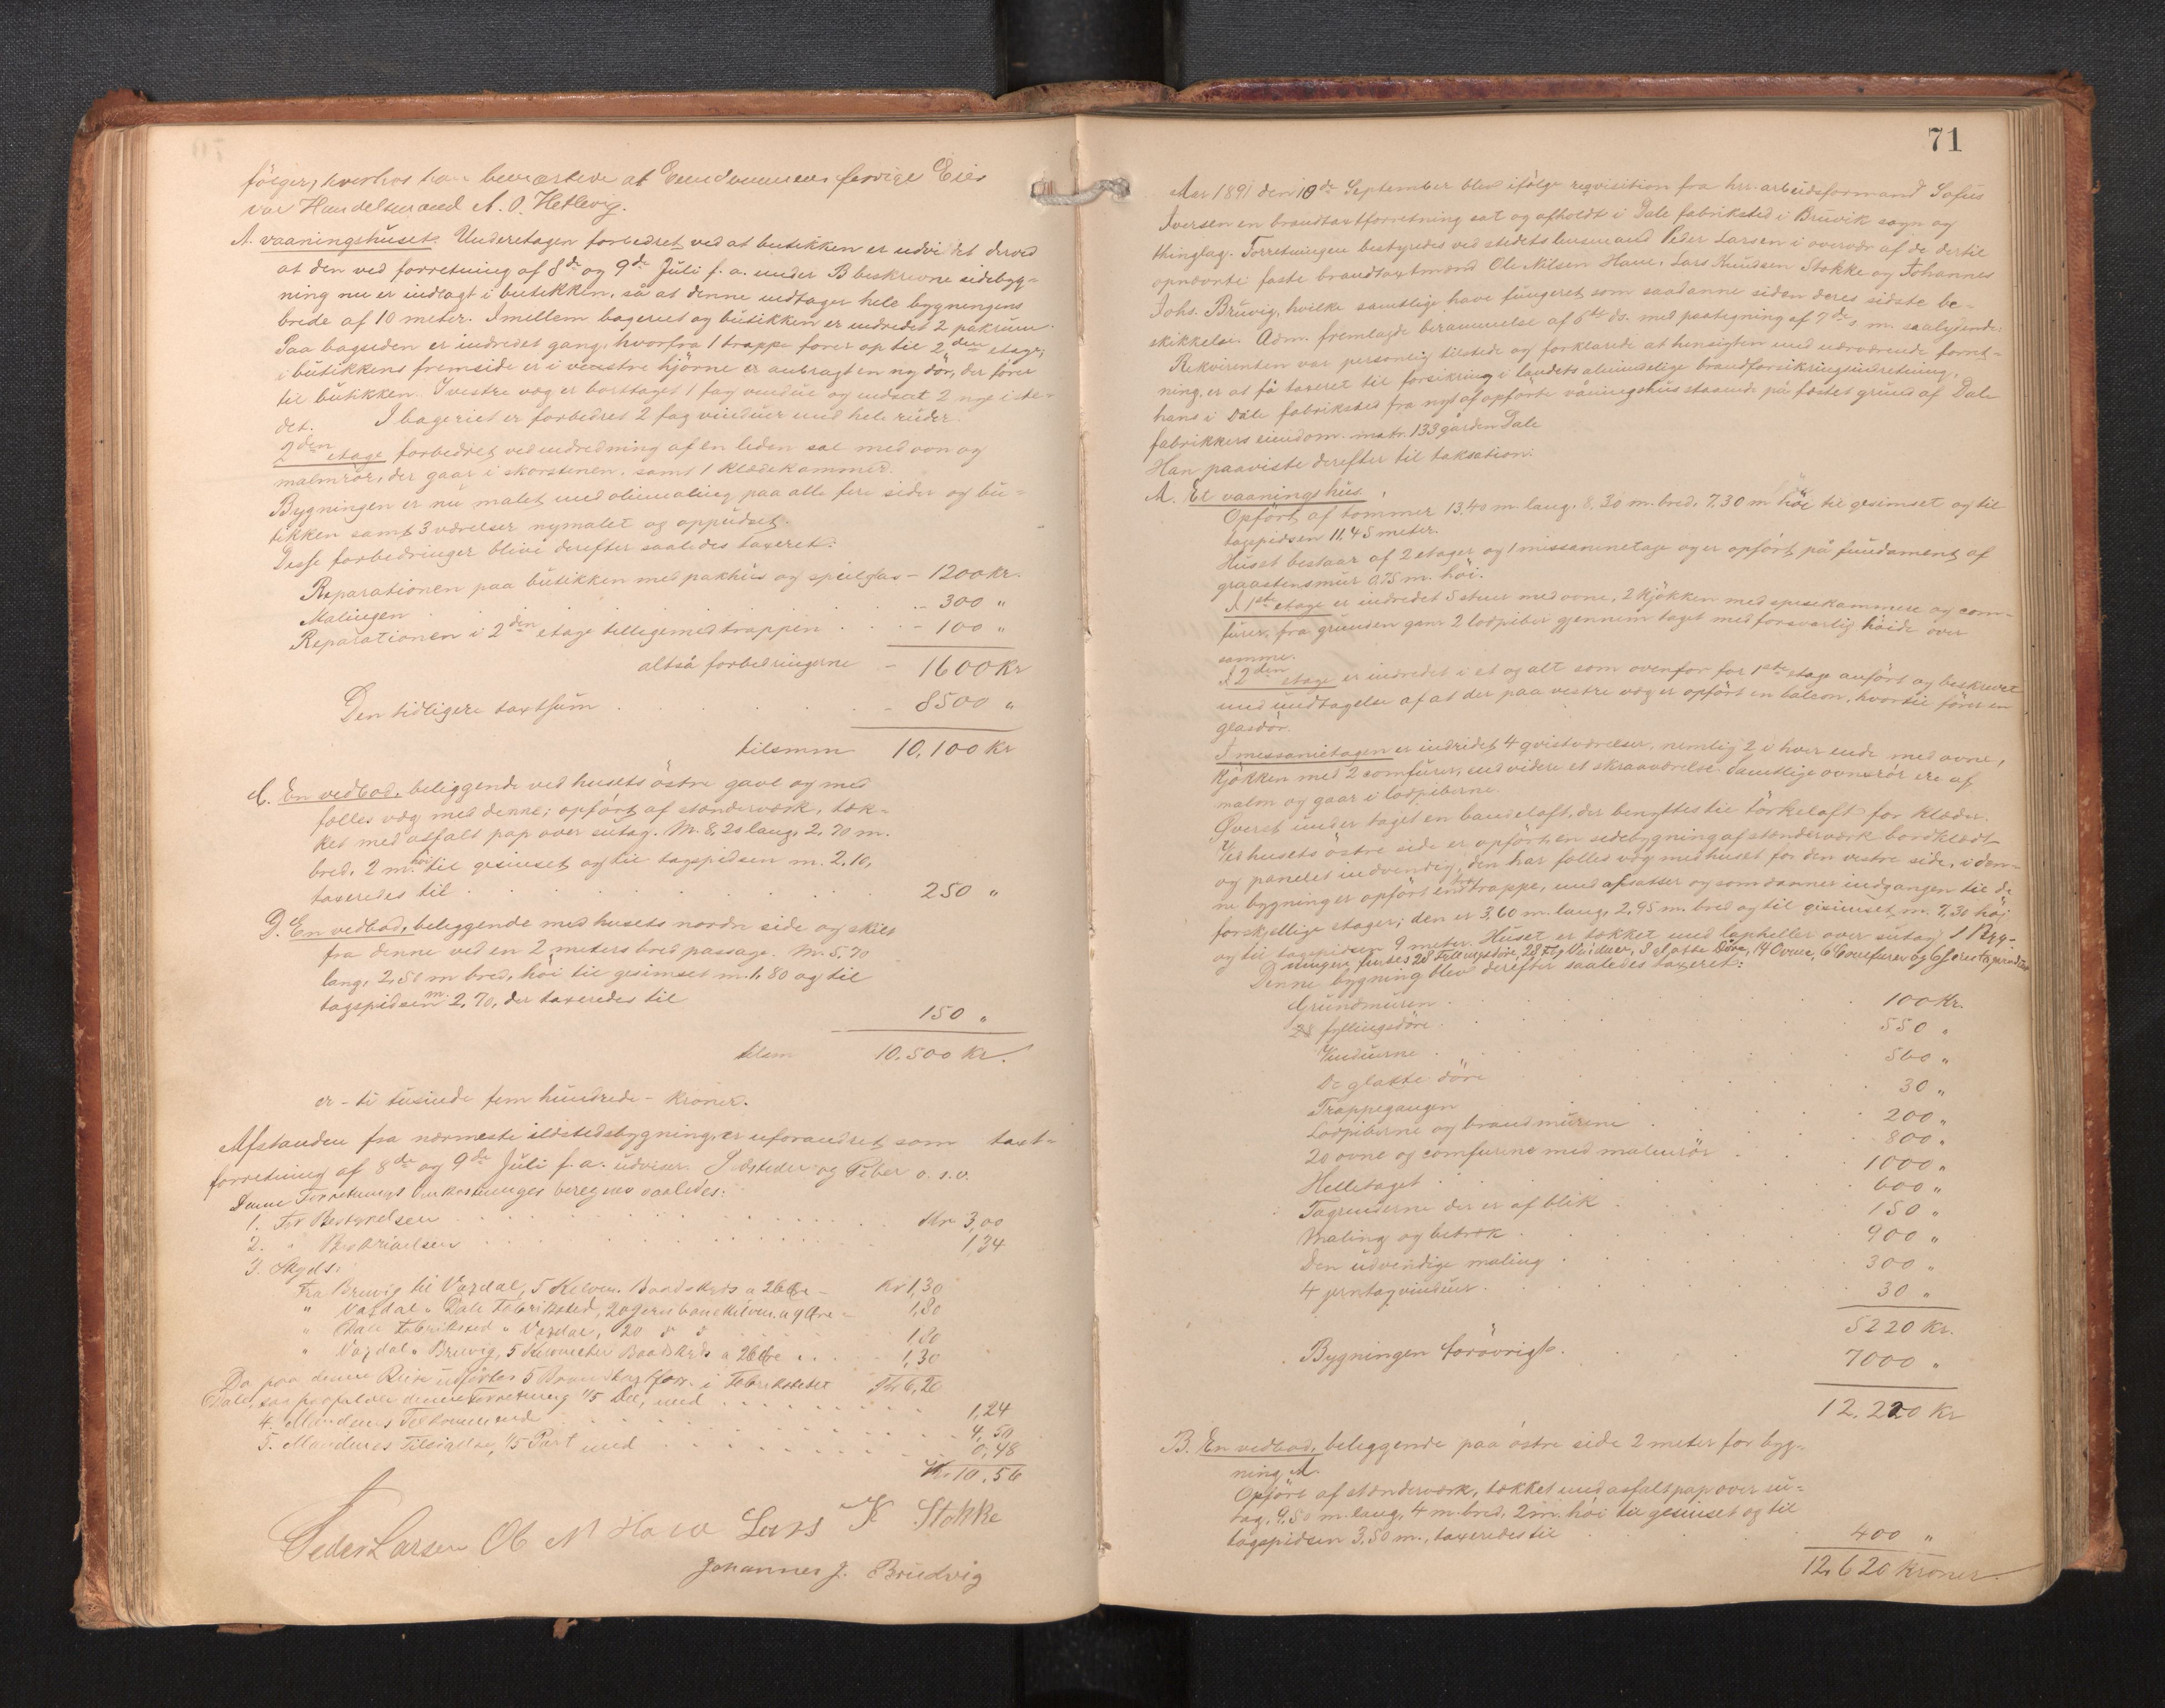 følger, hvorhos han bemærkede at Eiendommens forrige Eier
var Handelsmand A. O. Hetlevig.
A. vaaningshuset. Underetagen forbedret ved at butikken er udvidet derved
at den ved forretning af 8de og 9de Juli f. a. under B beskrevne sidebyg=
ning nu er indtagt i butikken, så at denne indtager hele bygningens
brede af 10 meter. Imellem bageriet og butikken er indredet 2 pakrum.
Paa bagsiden er indredet gang, hvorfra 1 trappe fører op til 2den etage;
i butikkens fremside er i venstre hjörne er anbragt en ny dör, der förer
til butikken. I vestre væg er borttaget 1 fag vindue og indsat 2 nye iste=
det. I bageriet er forbedret 2 fag vinduer med hele ruder.
2den etage forbedret ved indredning af en liden sal med ovn og
malmrör, der gaar i skorstenen, samt 1 klædekammer.
Bygningen er nu malet med oliemaling paa alle fire sider og bu=
tikken samt 3 værelser nymalet og oppudset.
Disse forbedringer blive derefter saaledes taxeret:
Reparationen paa butikken med pakhus og speilglas - 1200 kr.
Malingen . . . - 300 "
Reparationen i 2den etage tilligemed trappen . . . - 100 "
altså forbedringerne - 1600 Kr
Den tidligere taxtsum . . . - 8500 "
tilsmm 10,100 Kr
C. En vedbod, beliggende ved husets östre gavl og med
fælles væg med denne; opført af stænderværk, tæk=
ket med asfalt pap over sutag. M. 8,20 lang, 2,70 m.
bred, 2 m. höi til gesimset og til tagspidsen m. 2,10,
taxeredes til . . . 250 "
D. En vedbod, beliggende med husets nordre side og skilt
fra denne ved en 2 meters bred passage. M. 5,70
lang, 2,50 m bred, höi til gesimset m. 1,80 og til
tagspidsen m. 2,70, der taxeredes til
150 "
tilsm 10.500 Kr.
er - ti tusinde fem hundrede - Kroner.
Afstanden fra nærmeste ildstedsbygning er uforandret som taxt=
forretning af 8de og 9de Juli f. a. udviser. Ildsteder og Piber o. s. v.
Denne Forretnings Omkostninger beregnes saaledes:
1. For Bestyrelsen . . . Kr 3,00
2. " Beskrivelsen . . . 1,34
3. Skyds:
Fra Bruvig til Vaxdal, 5 Kilom. Baadskyds a 26 Øre - Kr 1,30
" Vaxdal " Dale Fabriksted, 20 Jernbanekilom. a 9 Øre - 1,80
" Dale Fabriksted " Vaxdal, 20 d d . . . 1,80
" Vaxdal " Bruvig, 5 Kilometer Baadskyds a 26 Øre . . 1,30
Da paa denne Reise udførtes 5 Brandtaxtforr. i Fabrikstedet Kr 6,20
Dale, saa paafalder denne Forretning 1/5 Del, med . . . 1,24
4. Mændenes Tilkommende . . . 4,50
5. Mændenes Tilsigelse, 1/5 Part med . . . 0,48
Kr. 10,56
Peder Larsen Ole N Have Lars K Stokke
Johannes J. Brudvig
71
Aar 1891 den 10de September blev ifölge reqvisition fra hr. arbeidsformand Sofus
Iversen en brandtaxtforretning sat og afholdt i Dale fabriksted i Bruvik sogn og
thinglag. Forretningen bestyredes ved stedets lensmand Peder Larsen i overvær af de dertil
opnævnte faste brandtaxtmænd Ole Nilsen Have, Lars Knudsen Stokke og Johannes
Johs. Bruvig, hvilke samtlige have fungeret som saadanne siden deres sidste be=
skikkelse. Adm. fremlagde berammelse af 6te ds. med paategning af 7de s. m. saalydende:
Rekvirenten var personlig tilstede og forklarede at hensigten med nærværende forret=
ning, er at få taxeret til forsikring i landets almindelige brandforsikringsindretning,
hans i Dale fabriksted fra nyt af opförte våningshus staaende på fæstet grund af Dale
fabrikkers eiendom. matr. 133 gården Dale
Han paaviste derefter til taksation:
A. Et vaaningshus,
Opført af tømmer 13,40 m. lang, 8,30 m. bred, 7,30 m höi til gesimset og til
tagspidsen 11,45 meter.
Huset bestaar af 2 etager og 1 messaninetage og er opført på fundament af
graastensmur 0,75 m. höi.
I 1ste etage er indredet 5 stuer med ovne, 2 kjökken med spisekammere og com=
furer, fra grunden gaar 2 lodpiber gjennem taget med forsvarlig höide over
samme.
I 2den etage er indredet i et og alt som ovenfor for 1ste etage anfört og beskrevet
med undtagelse af at der paa vestre væg er opfört en balcon, hvortil förer en
glasdör.
I messanietagen er indredet 4 qvistværelser, nemlig 2 i hver ende med ovne,
Kjökken med 2 comfurer, endvidere et skraaværelse. Samtlige ovnsrör ere af
malm og gaar i lodpiberne.
Øverst under taget en bandeloft, der benyttes til törkeloft for klæder.
Ved husets östre side er opfört en sidebygning af stænderværk bordklædt
og panelet indvendig, den har fælles væg med huset for den vestre side, i den=
ne bygning er opfört en trappe, med afsatser og som danner indgangen til de
forskjellige etager; den er 3,60 m. lang, 2,95 m. bred og til gesimset m. 7,30 höj
og til tagspidsen 9 meter. Huset er tækket med lapheller over sutag. I Byg-
ningen findes 28 Fyllingsdöre, 28 Fag Vinduer, 3 glatte Döre, 14 Ovne, 6 Comfurer og 6
Denne bygning blev derefter saaledes taxeret:
Grundmuren . . . 100 Kr.
28 fyllingsdöre . . . 550 "
Vinduerne . . . 560 "
De glatte döre . . . 30 "
Trappegangen . . . 200 "
Lodpiberne og brandmurene . . . 800 "
20 ovne og comfurene med malmrör . . . 1000 "
Helletaget . . . 600 "
Tagrenderne der er af blik . . . 150 "
Maling og betræk . . . 900 "
Den udvendige maling . . . 300 "
4 jerntagvinduer . . . 30 "
5220 Kr.
Bygningen forövrigt . . . 7000 "
12,220 Kr
B. En vedbod, beliggende paa östre side 2 meter for byg=
ning A.
Opfört af stænderværk, tækket med asfaltpap over su=
tag, 9,50 m. lang, 4 m. bred, 2 m. höi til gesimset og til
tagspidsen 3,50 m., taxeredes til . . . 400 "
12,620 Kroner.